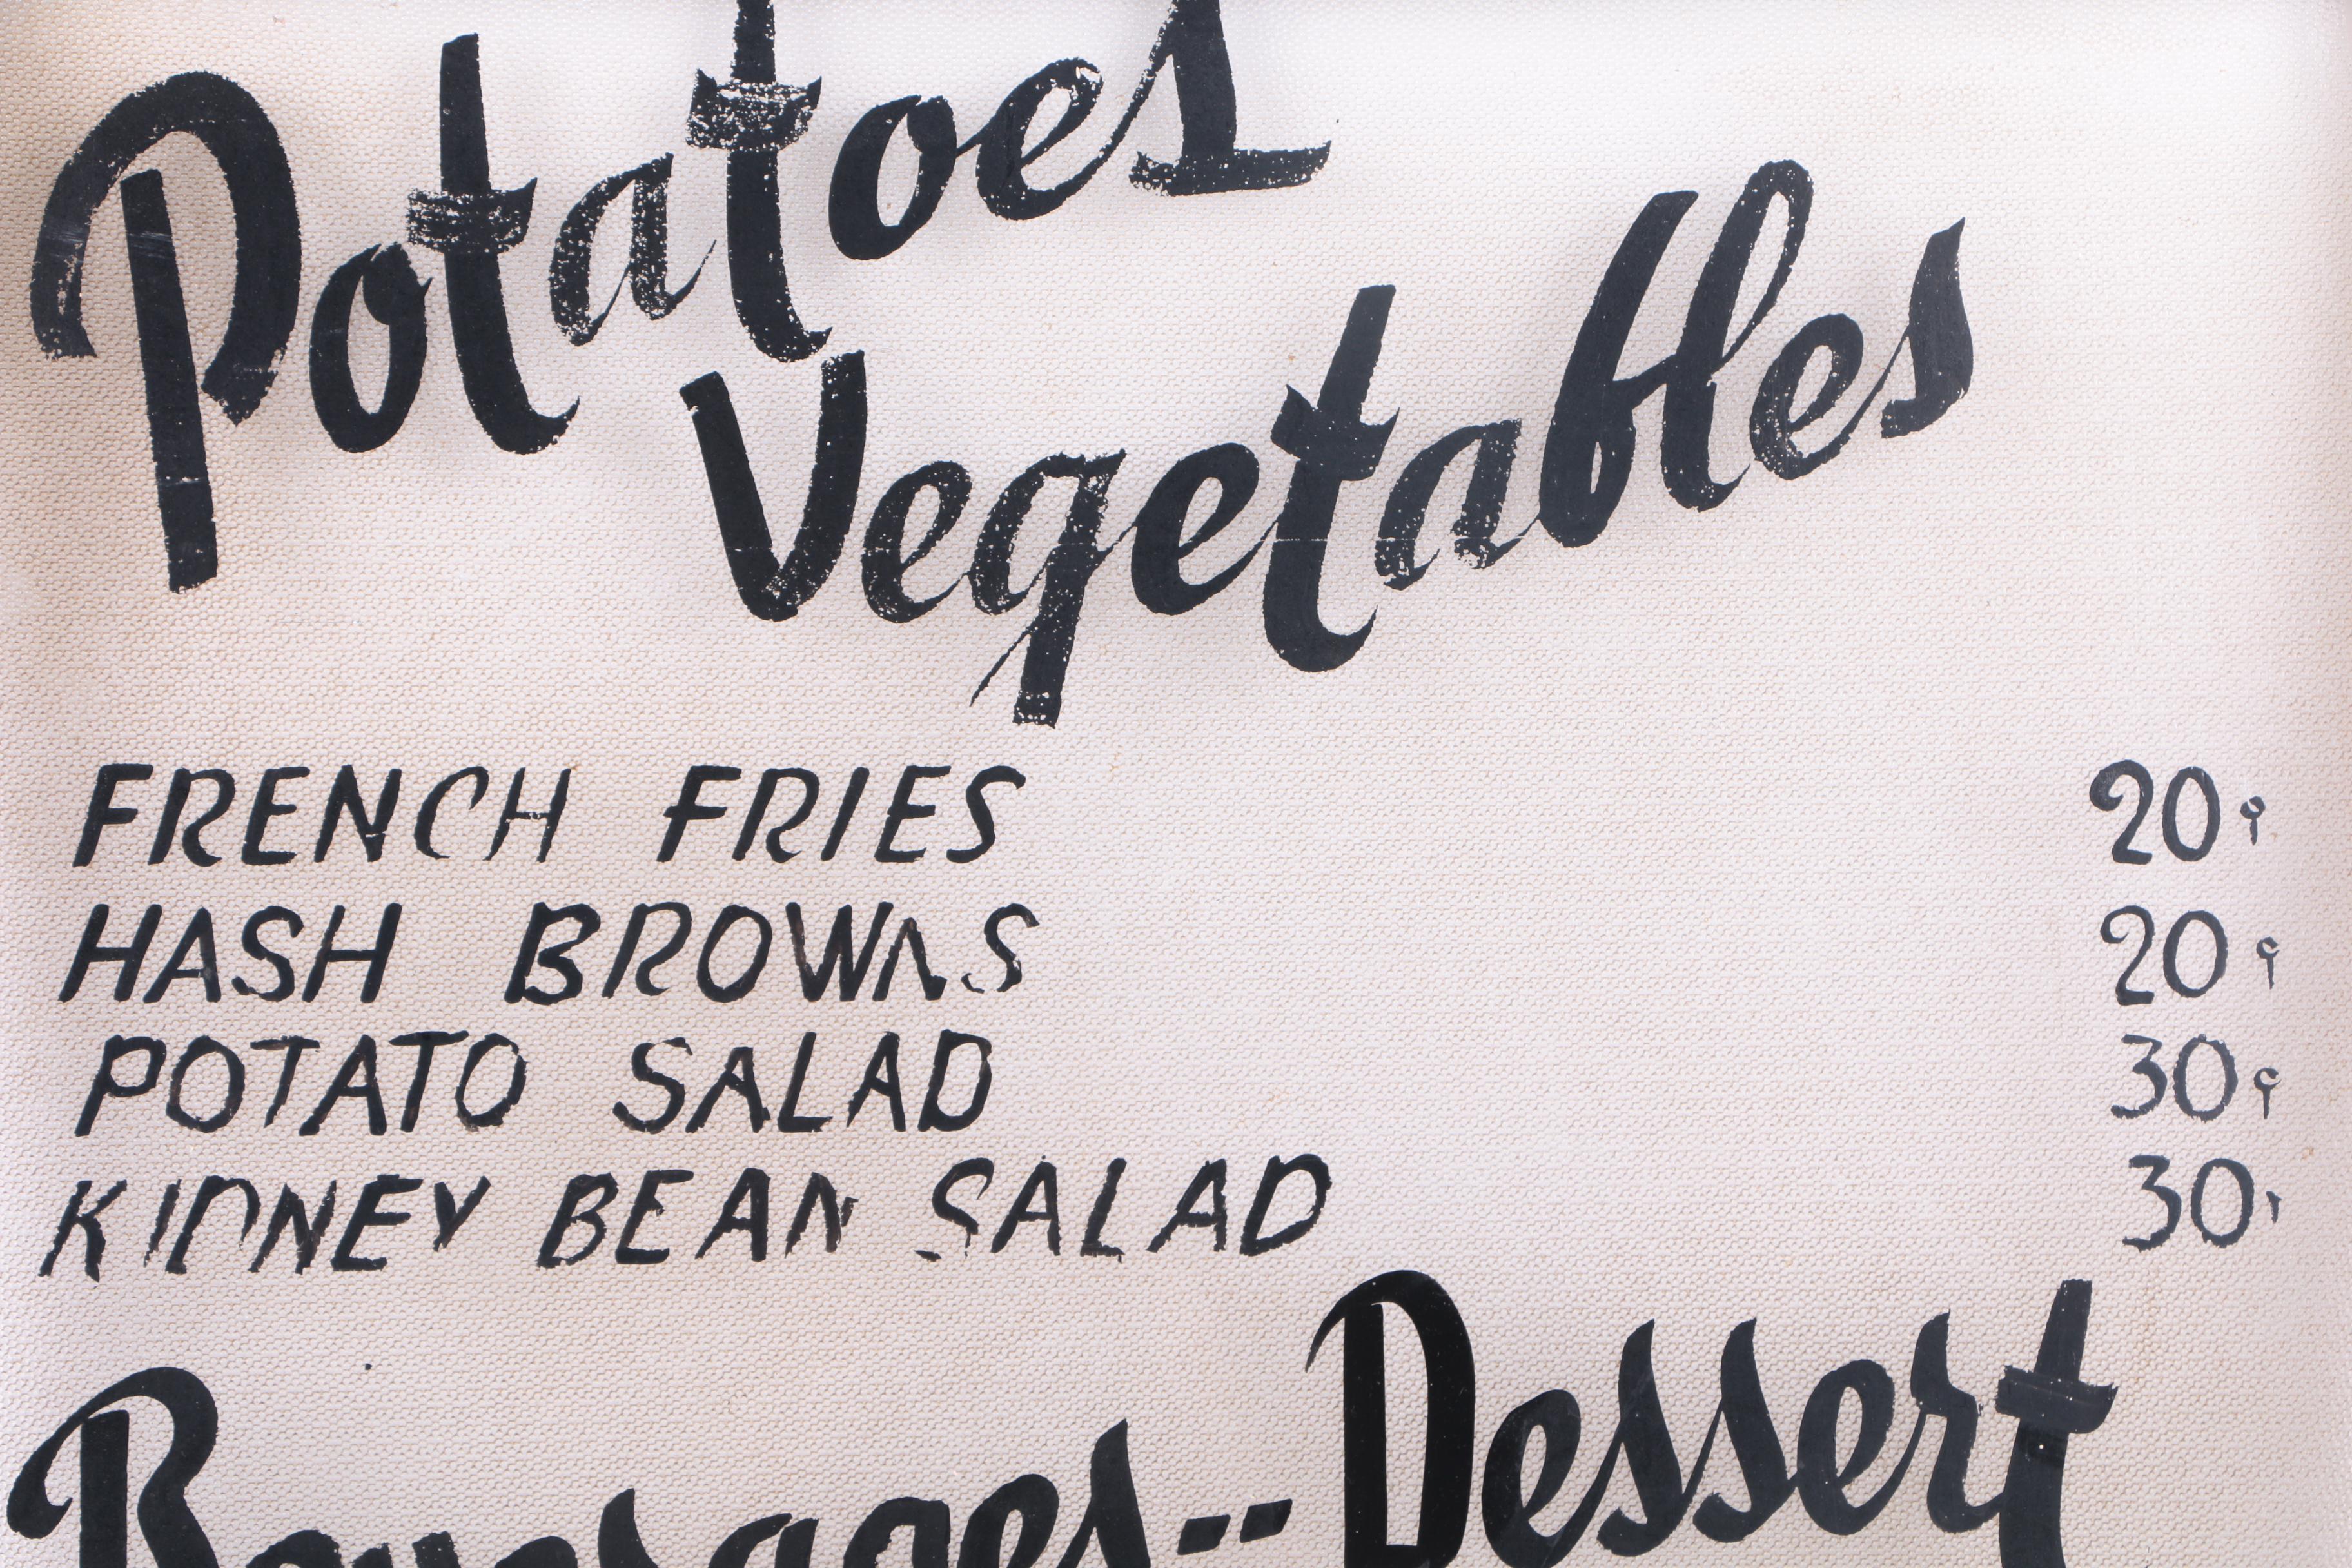 Potatoes
Vegetables
FRENCH FRIES 20¢
HASH BROWNS 20¢
POTATO SALAD 30¢
KIDNEY BEAN SALAD 30¢
Beverages -- Dessert